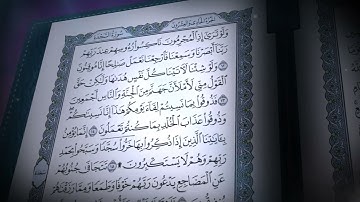 الجزء الحادي والعشرون سورة السجدة
وَلَوْ تَرَىٰ إِذِ الْمُجْرِمُونَ نَاكِسُوا رُءُوسِهِمْ عِندَ رَبِّهِمْ
رَبَّنَا أَبْصَرْنَا وَسَمِعْنَا فَارْجِعْنَا نَعْمَلْ صَالِحًا إِنَّا مُوقِنُونَ
۝١٢ وَلَوْ شِئْنَا لَآتَيْنَا كُلَّ نَفْسٍ هُدَاهَا وَلَٰكِنْ حَقَّ
الْقَوْلُ مِنِّي لَأَمْلَأَنَّ جَهَنَّمَ مِنَ الْجِنَّةِ وَالنَّاسِ أَجْمَعِينَ
۝١٣ فَذُوقُوا بِمَا نَسِيتُمْ لِقَاءَ يَوْمِكُمْ هَٰذَا إِنَّا نَسِينَاكُمْ
وَذُوقُوا عَذَابَ الْخُلْدِ بِمَا كُنتُمْ تَعْمَلُونَ ۝١٤ إِنَّمَا يُؤْمِنُ
بِآيَاتِنَا الَّذِينَ إِذَا ذُكِّرُوا بِهَا خَرُّوا سُجَّدًا وَسَبَّحُوا بِحَمْدِ
رَبِّهِمْ وَهُمْ لَا يَسْتَكْبِرُونَ ۩ ۝١٥ تَتَجَافَىٰ جُنُوبُهُمْ
عَنِ الْمَضَاجِعِ يَدْعُونَ رَبَّهُمْ خَوْفًا وَطَمَعًا وَمِمَّا رَزَقْنَاهُمْ